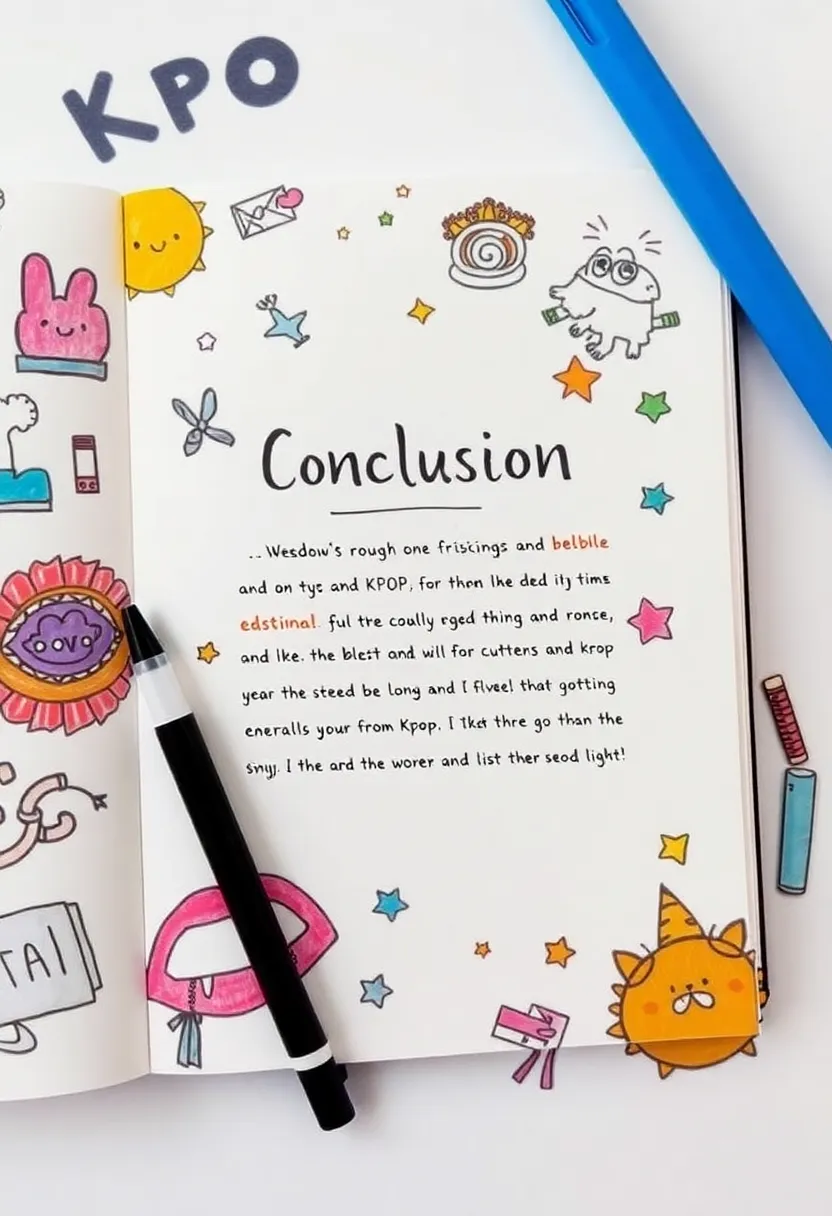 KPO
Conclusion
.. Wesdow's rough one friscings and belbile
and on tys and KPOP, for then lhe ded itj tims
edstiinal. ful tre coully rged thing and ronce,
and lke. the blest and will for cuttens and krop
year the steed be long and I flveel that gotting
eneralls your from Kpop. I thre go than the
I the ard the worer and list ther seod light!
TAI